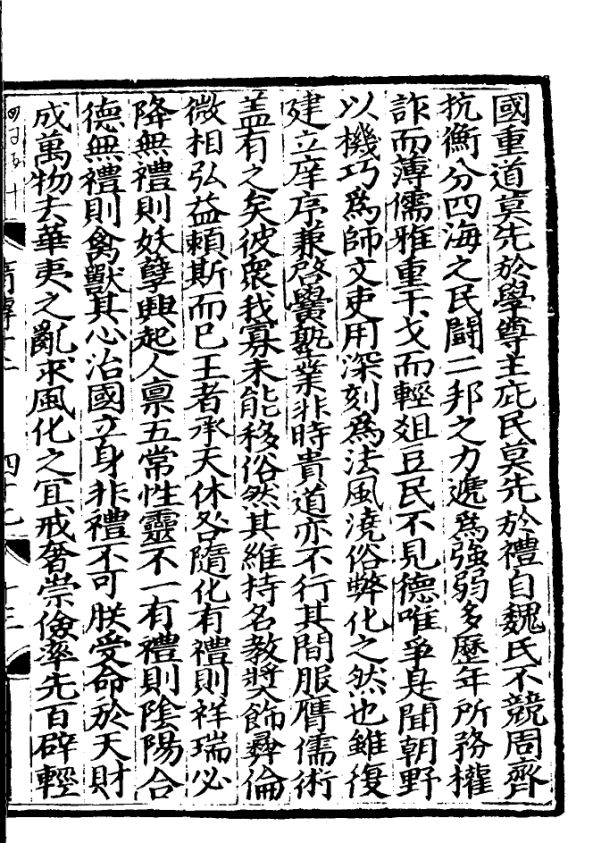 國重道莫先於學尊主庇民莫先於禮自魏氏不競周齊
抗衡分四海之民鬪二邦之力遞爲強弱多歷年所務權
詐而薄儒雅重干戈而輕俎豆民不見德唯爭是聞朝野
以機巧爲師文吏用深刻爲法風澆俗弊化之然也雖復
建立庠序兼啓黌塾業非時貴道亦不行其間服膺儒術
盖有之矣彼衆我寡未能移俗然其維持名教奬飾彝倫
微相弘益賴斯而已王者承天休咎隨化有禮則祥瑞必
降無禮則妖孽興起人禀五常性靈不一有禮則陰陽合
德無禮則禽獸其心治國立身非禮不可朕受命於天財
成萬物去華夷之亂求風化之宜戒奢崇儉率先百辟輕